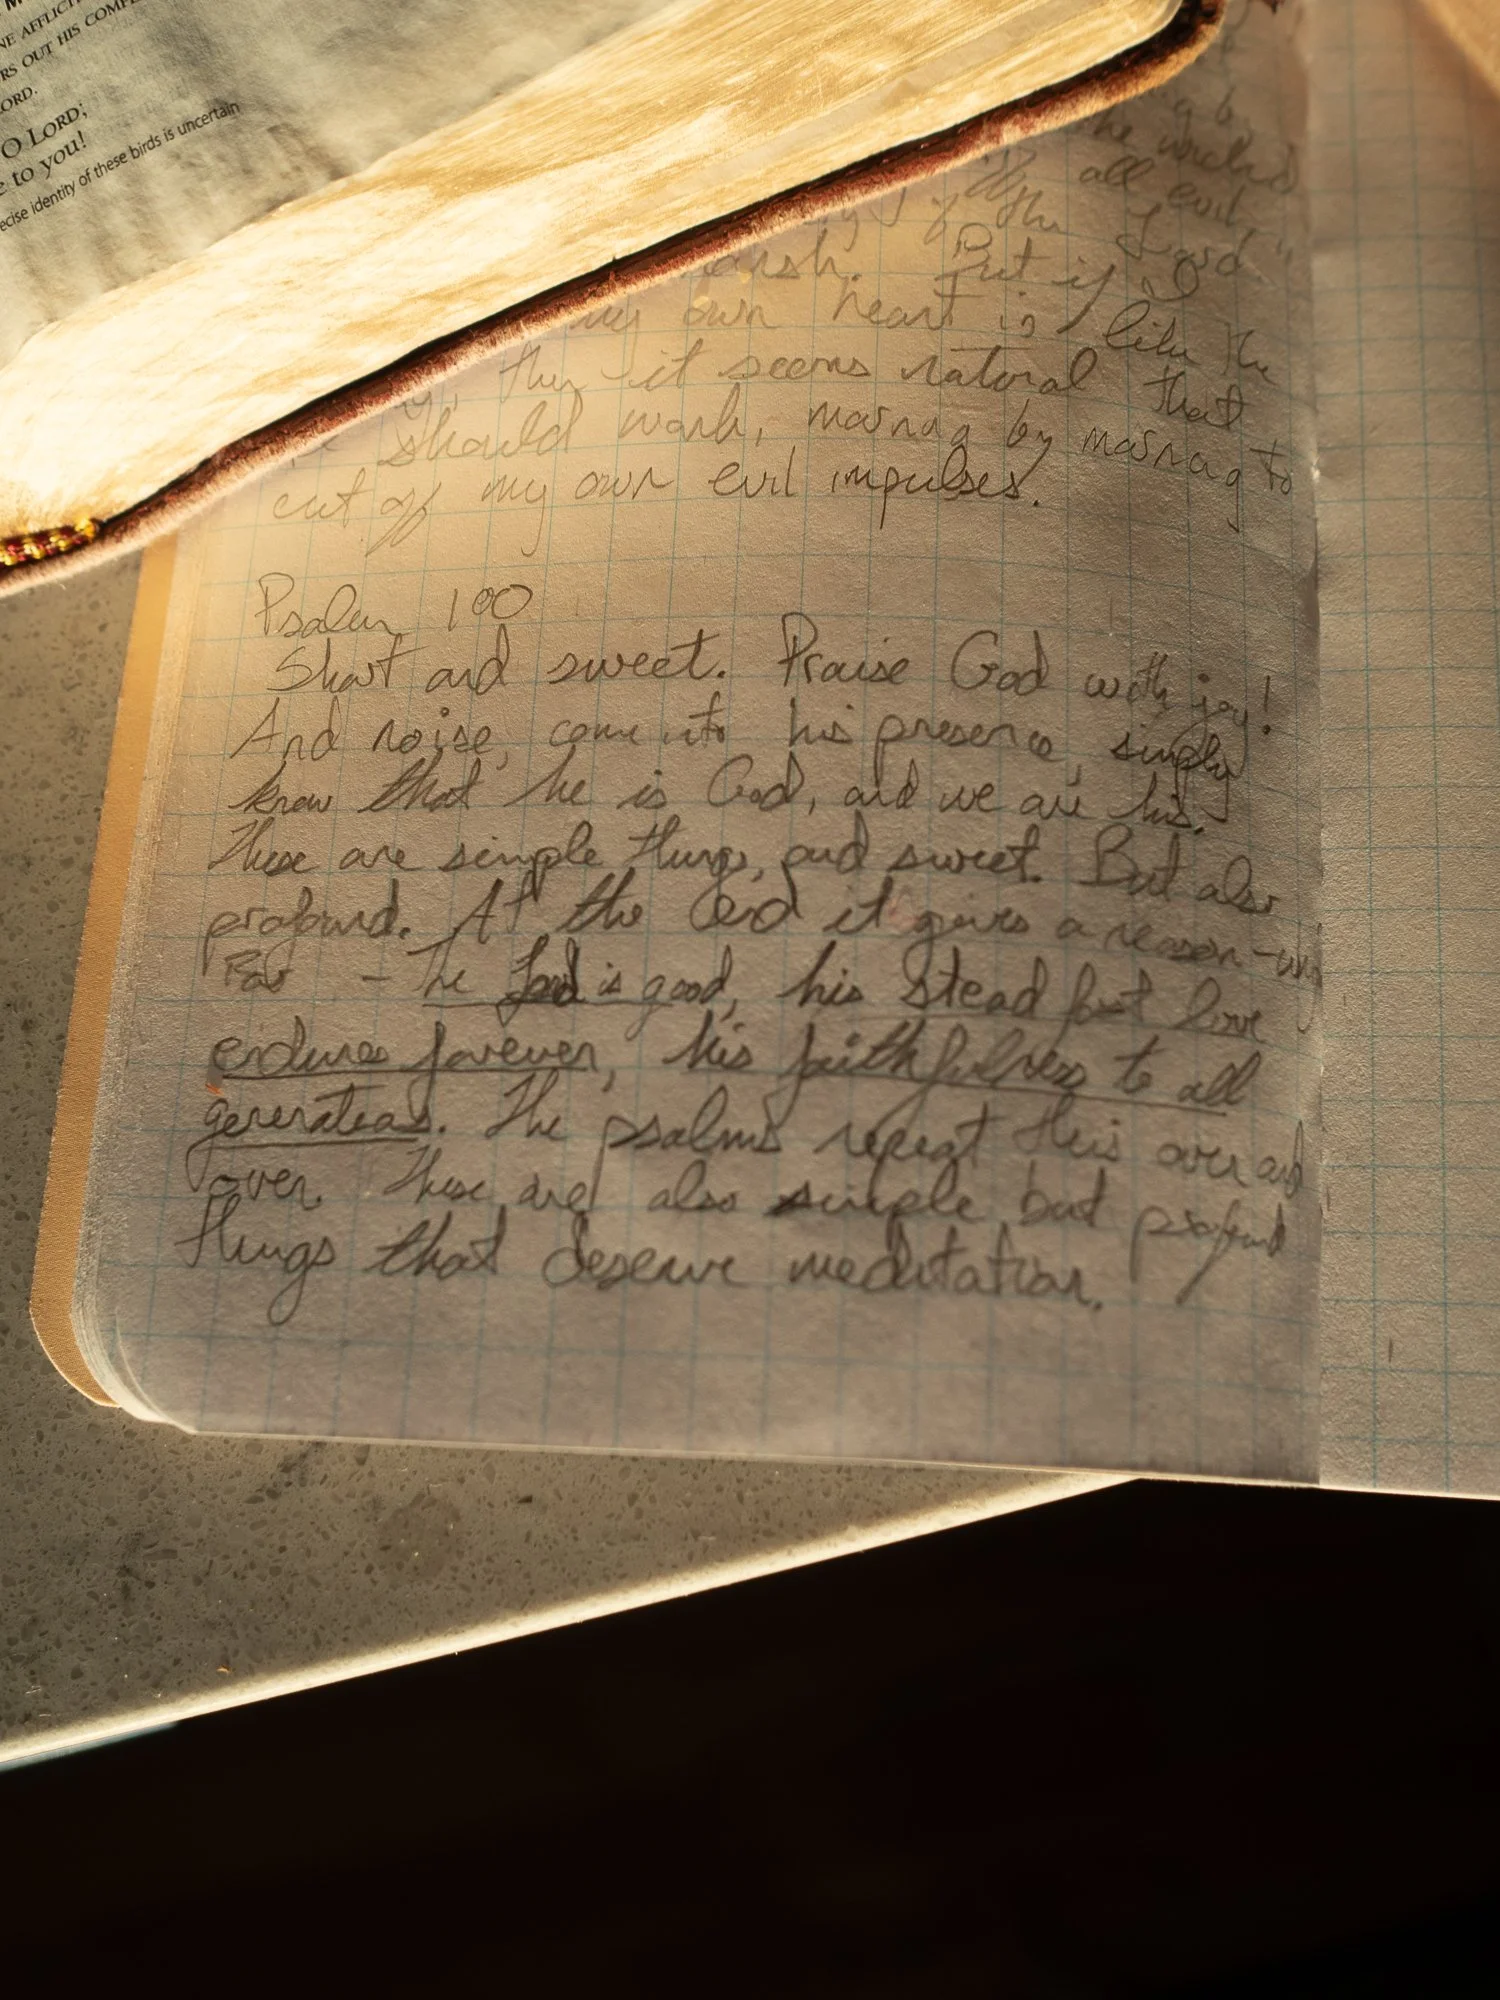 NE AFFLICT
RS OUT HIS COMPL
ORD.
O LORD;
e to you!
ecise identity of these birds is uncertain
the wicked
all evil,
if the Lord
harsh. But if
my own heart is like the
it seems natural that
should work, morning by morning to
cut off my own evil impulses.
Psalm 100
Short and sweet. Praise God with joy!
And noise, come into his presence, simply
know that he is God, and we are his.
These are simple things, and sweet. But also
profound. At the end it gives a reason - why
For - The Lord is good, his steadfast love
endures forever, his faithfulness to all
generations. The psalms repeat this over and
over. These are also simple but profound
things that deserve meditation.